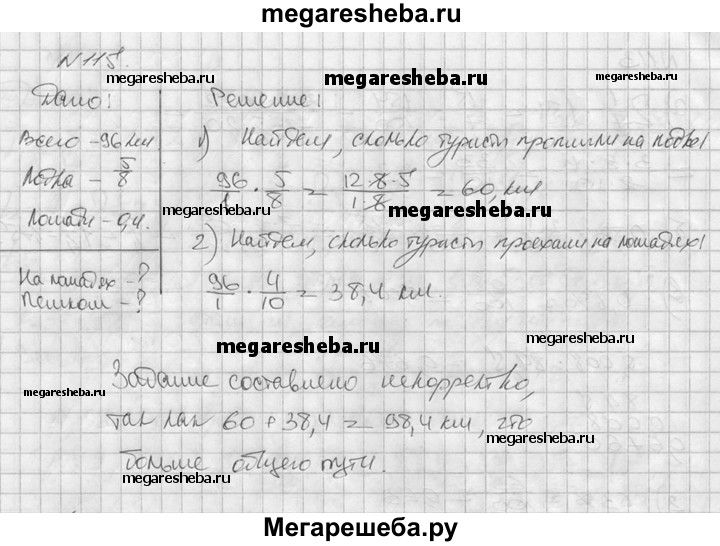 megaresheba.ru
N 115.
megaresheba.ru megaresheba.ru megaresheba.ru
Дано: Решение:
Всего - 96 км 1) Найдем, сколько туристы проплыли на лодке:
Лодка - 5/8 96/1 · 5/8 = 12·8·5/1·8 = 60 км
Лошади - 0,4. megaresheba.ru megaresheba.ru
2) Найдем, сколько туристы проехали на лошадях:
На лошадях - ?
Пешком - ? 96/1 · 4/10 = 38,4 км.
megaresheba.ru megaresheba.ru
megaresheba.ru
Задание составлено некорректно,
megaresheba.ru
так как 60 + 38,4 = 98,4 км, что
megaresheba.ru
больше общего пути.
megaresheba.ru megaresheba.ru
Мегарешеба.ру